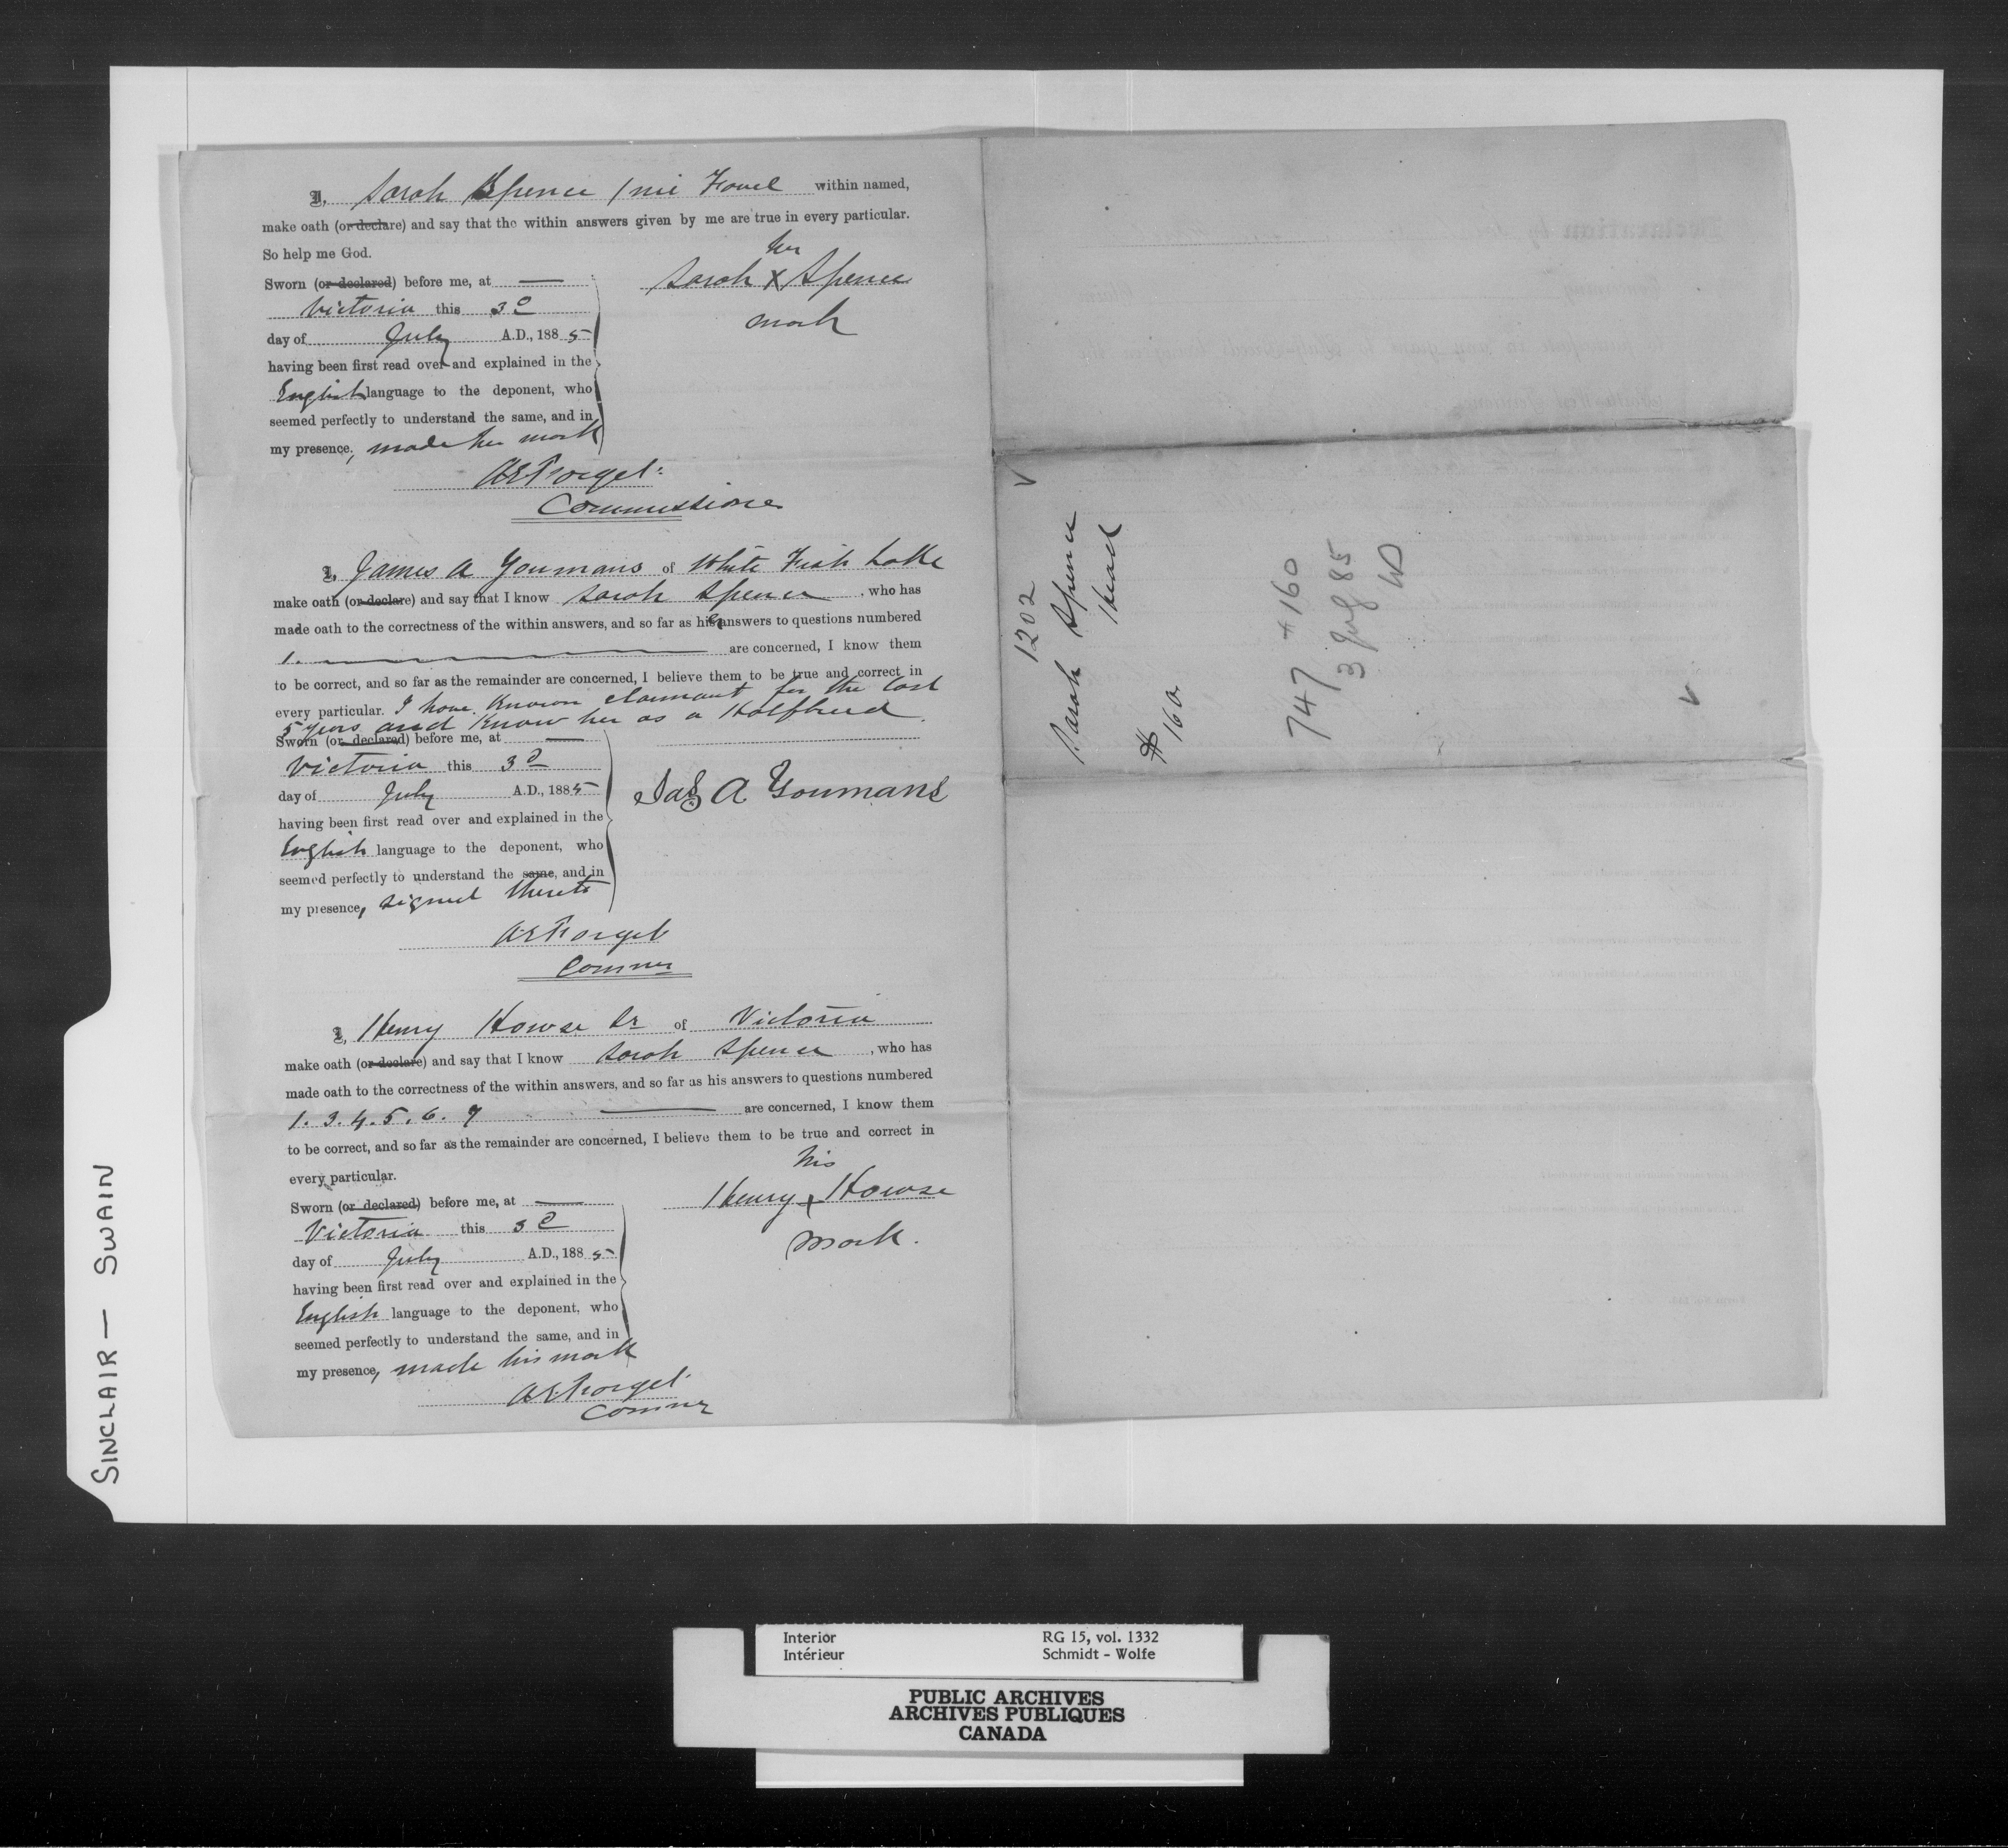 I, Sarah Spence (née Fovel within named,
make oath (or declare) and say that the within answers given by me are true in every particular.
So help me God.
her
Sworn (or declared) before me, at —
Sarah X Spence
Victoria this 3d
mark
day of July A.D., 1885
having been first read over and explained in the
English language to the deponent, who
seemed perfectly to understand the same, and in
my presence, made her mark
AE Forget
Commissioner
I, James A Youmans of White Fish Lake
make oath (or declare) and say that I know Sarah Spence, who has
made oath to the correctness of the within answers, and so far as her answers to questions numbered
1. — are concerned, I know them
to be correct, and so far as the remainder are concerned, I believe them to be true and correct in
every particular. I have known claimant for the last
5 years and know her as a Halfbreed.
Sworn (or declared) before me, at —
Victoria this 3d
day of July A.D., 1885
Jas A Youmans
having been first read over and explained in the
English language to the deponent, who
seemed perfectly to understand the same, and in
my presence, signed thereto
AE Forget
Commr
I, Henry Howse Sr of Victoria
make oath (or declare) and say that I know Sarah Spence, who has
made oath to the correctness of the within answers, and so far as his answers to questions numbered
1. 3. 4. 5. 6. 7 — are concerned, I know them
to be correct, and so far as the remainder are concerned, I believe them to be true and correct in
every particular.
his
Sworn (or declared) before me, at —
Henry X Howse
Victoria this 3d
mark.
day of July A.D., 1885
having been first read over and explained in the
English language to the deponent, who
seemed perfectly to understand the same, and in
my presence, made his mark
AE Forget
Commr
1202
Sarah Spence
Head
$160
747 $160
3 July 85
SINCLAIR — SWAIN
Interior RG 15, vol. 1332
Intérieur Schmidt - Wolfe
PUBLIC ARCHIVES
ARCHIVES PUBLIQUES
CANADA